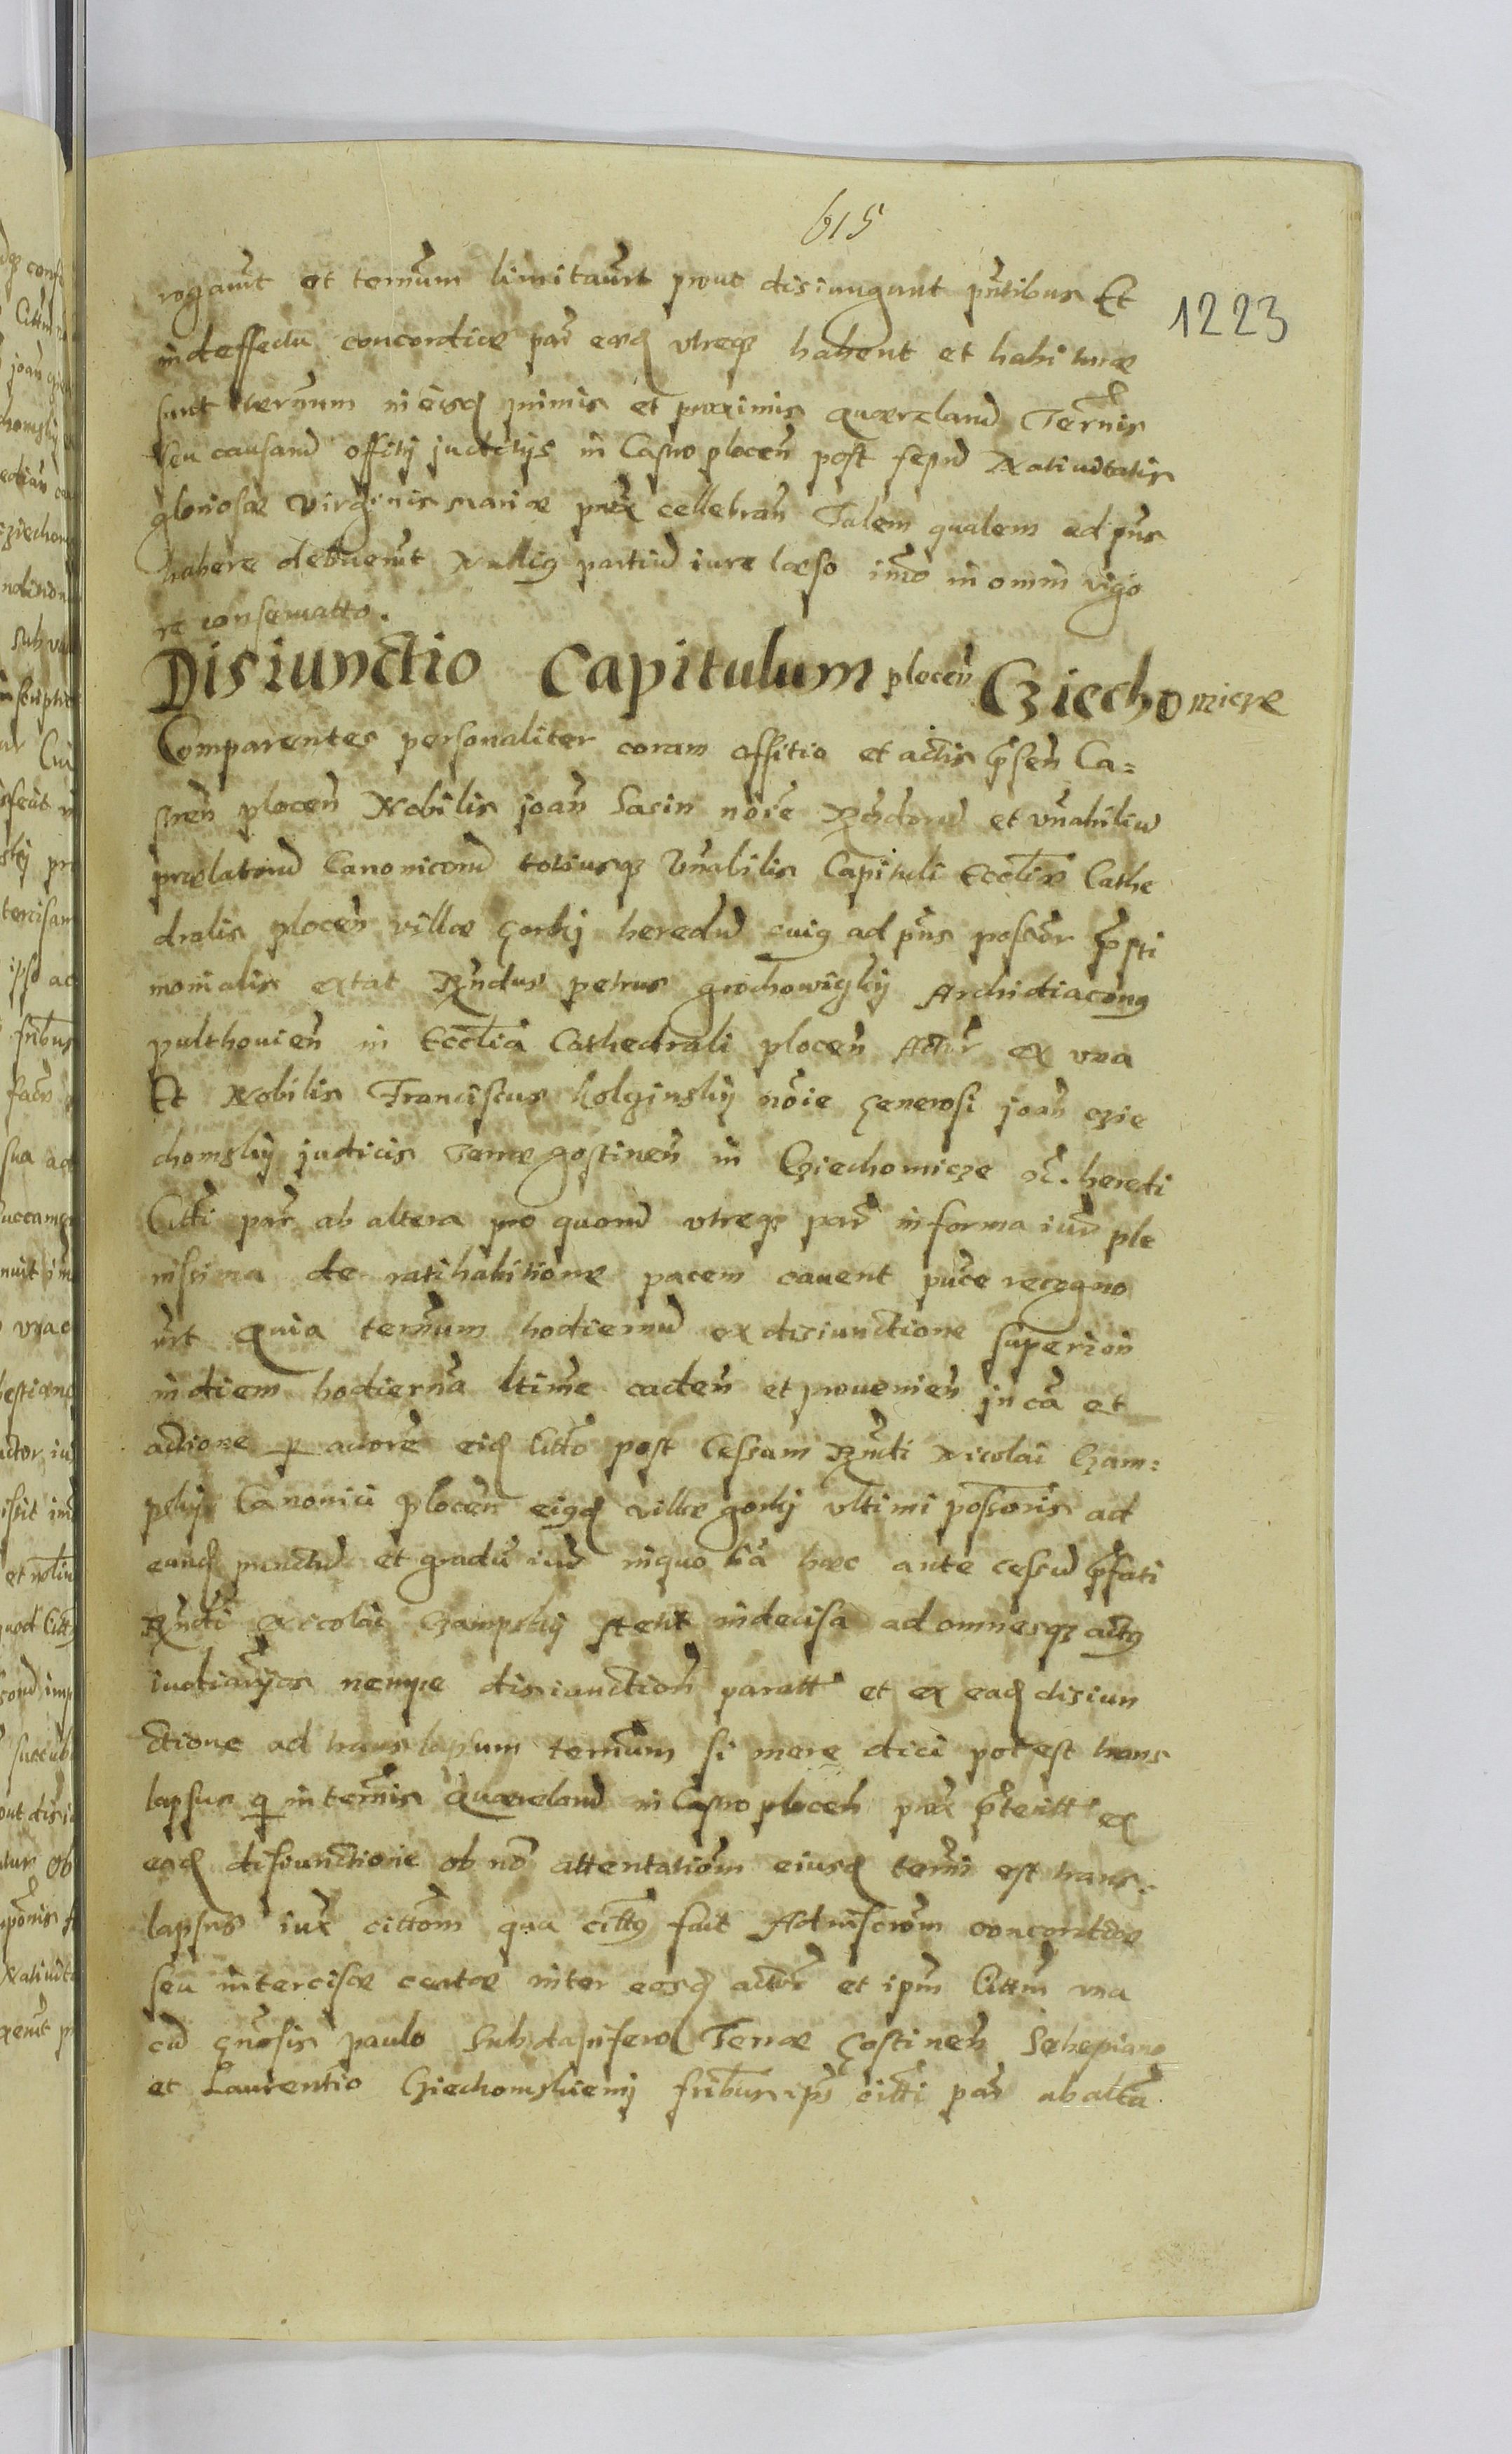 615
1223
rogavit et terminum limitavit prout disiungunt pntibus Et
indeffectu concordiæ par easq utreq habent et habituræ
sunt terminum in eisq primis et proximis quærelarum Terminis
seu causarum offitij juditijs in Castro plocen post festum Nativitatis
gloriosæ Virginis Mariæ prox cellebran Talem qualem ad pns
habere debuerunt Nullig partium iure læso imo in omni vigo
re conservatto.
Disiunctio Capitulum plocen Cziechomicze
Comparentes personaliter coram offitio et actis psen Ca=
stren plocen Nobilis joan Sasin noie Rndorum et vnabilium
prælatorum Canonicorum totiusq Vnabilis Capituli Ecclæ Cathe
dralis plocen villæ gorkj heredum cuig ad pns possor psti
monialis extat Rndus petrus grochowiczkij Archidiacong
pulthovien in Ecclia Cathedrali plocen Actor ex una
Et Nobilis Franciscus kolginskij noie generosi joan czie
chomskij judicis Terræ gostinen in Cziechomicze etc. heredi
Citti par ab altera pro quorum utreq par in forma iur ple
nissima de ratihabitione pacem cavent pnte recogno
urt Quia terminum hodiernum ex disiunctione superiori
in diem hodierna ltime caden et provenien in ca et
actione p actore eiq Citto post Cessum Rndi Nicolai Czam=
pskij Canonici plocen eigq villæ gorkj ultimi possoris ad
eunq punctum et gradu iur in quo ca hæc ante cessum pfati
Rndi Nicolai Czampskij stetit indecisa ad omnesq actg
iudiciarios nempe disiunction paratt et ex eaq disiun
ctione ad translapsum terminum si mere dici potest trans
lapsus q in terminis Quærelarum in Castro plocen prox pteritt ex
eaq disiunctione ob no attentationem eiusq termini est trans=
lapsus iux cittom qua cittg fuit Ad inscrom concordiæ
seu intercisæ certæ inter eosq actor et ipm Cittm una
cum gnosis paulo Subdapifero Terræ Gostinen Stephano
et Laurentio Cziechomskiemj fribus ips citti par ab altera